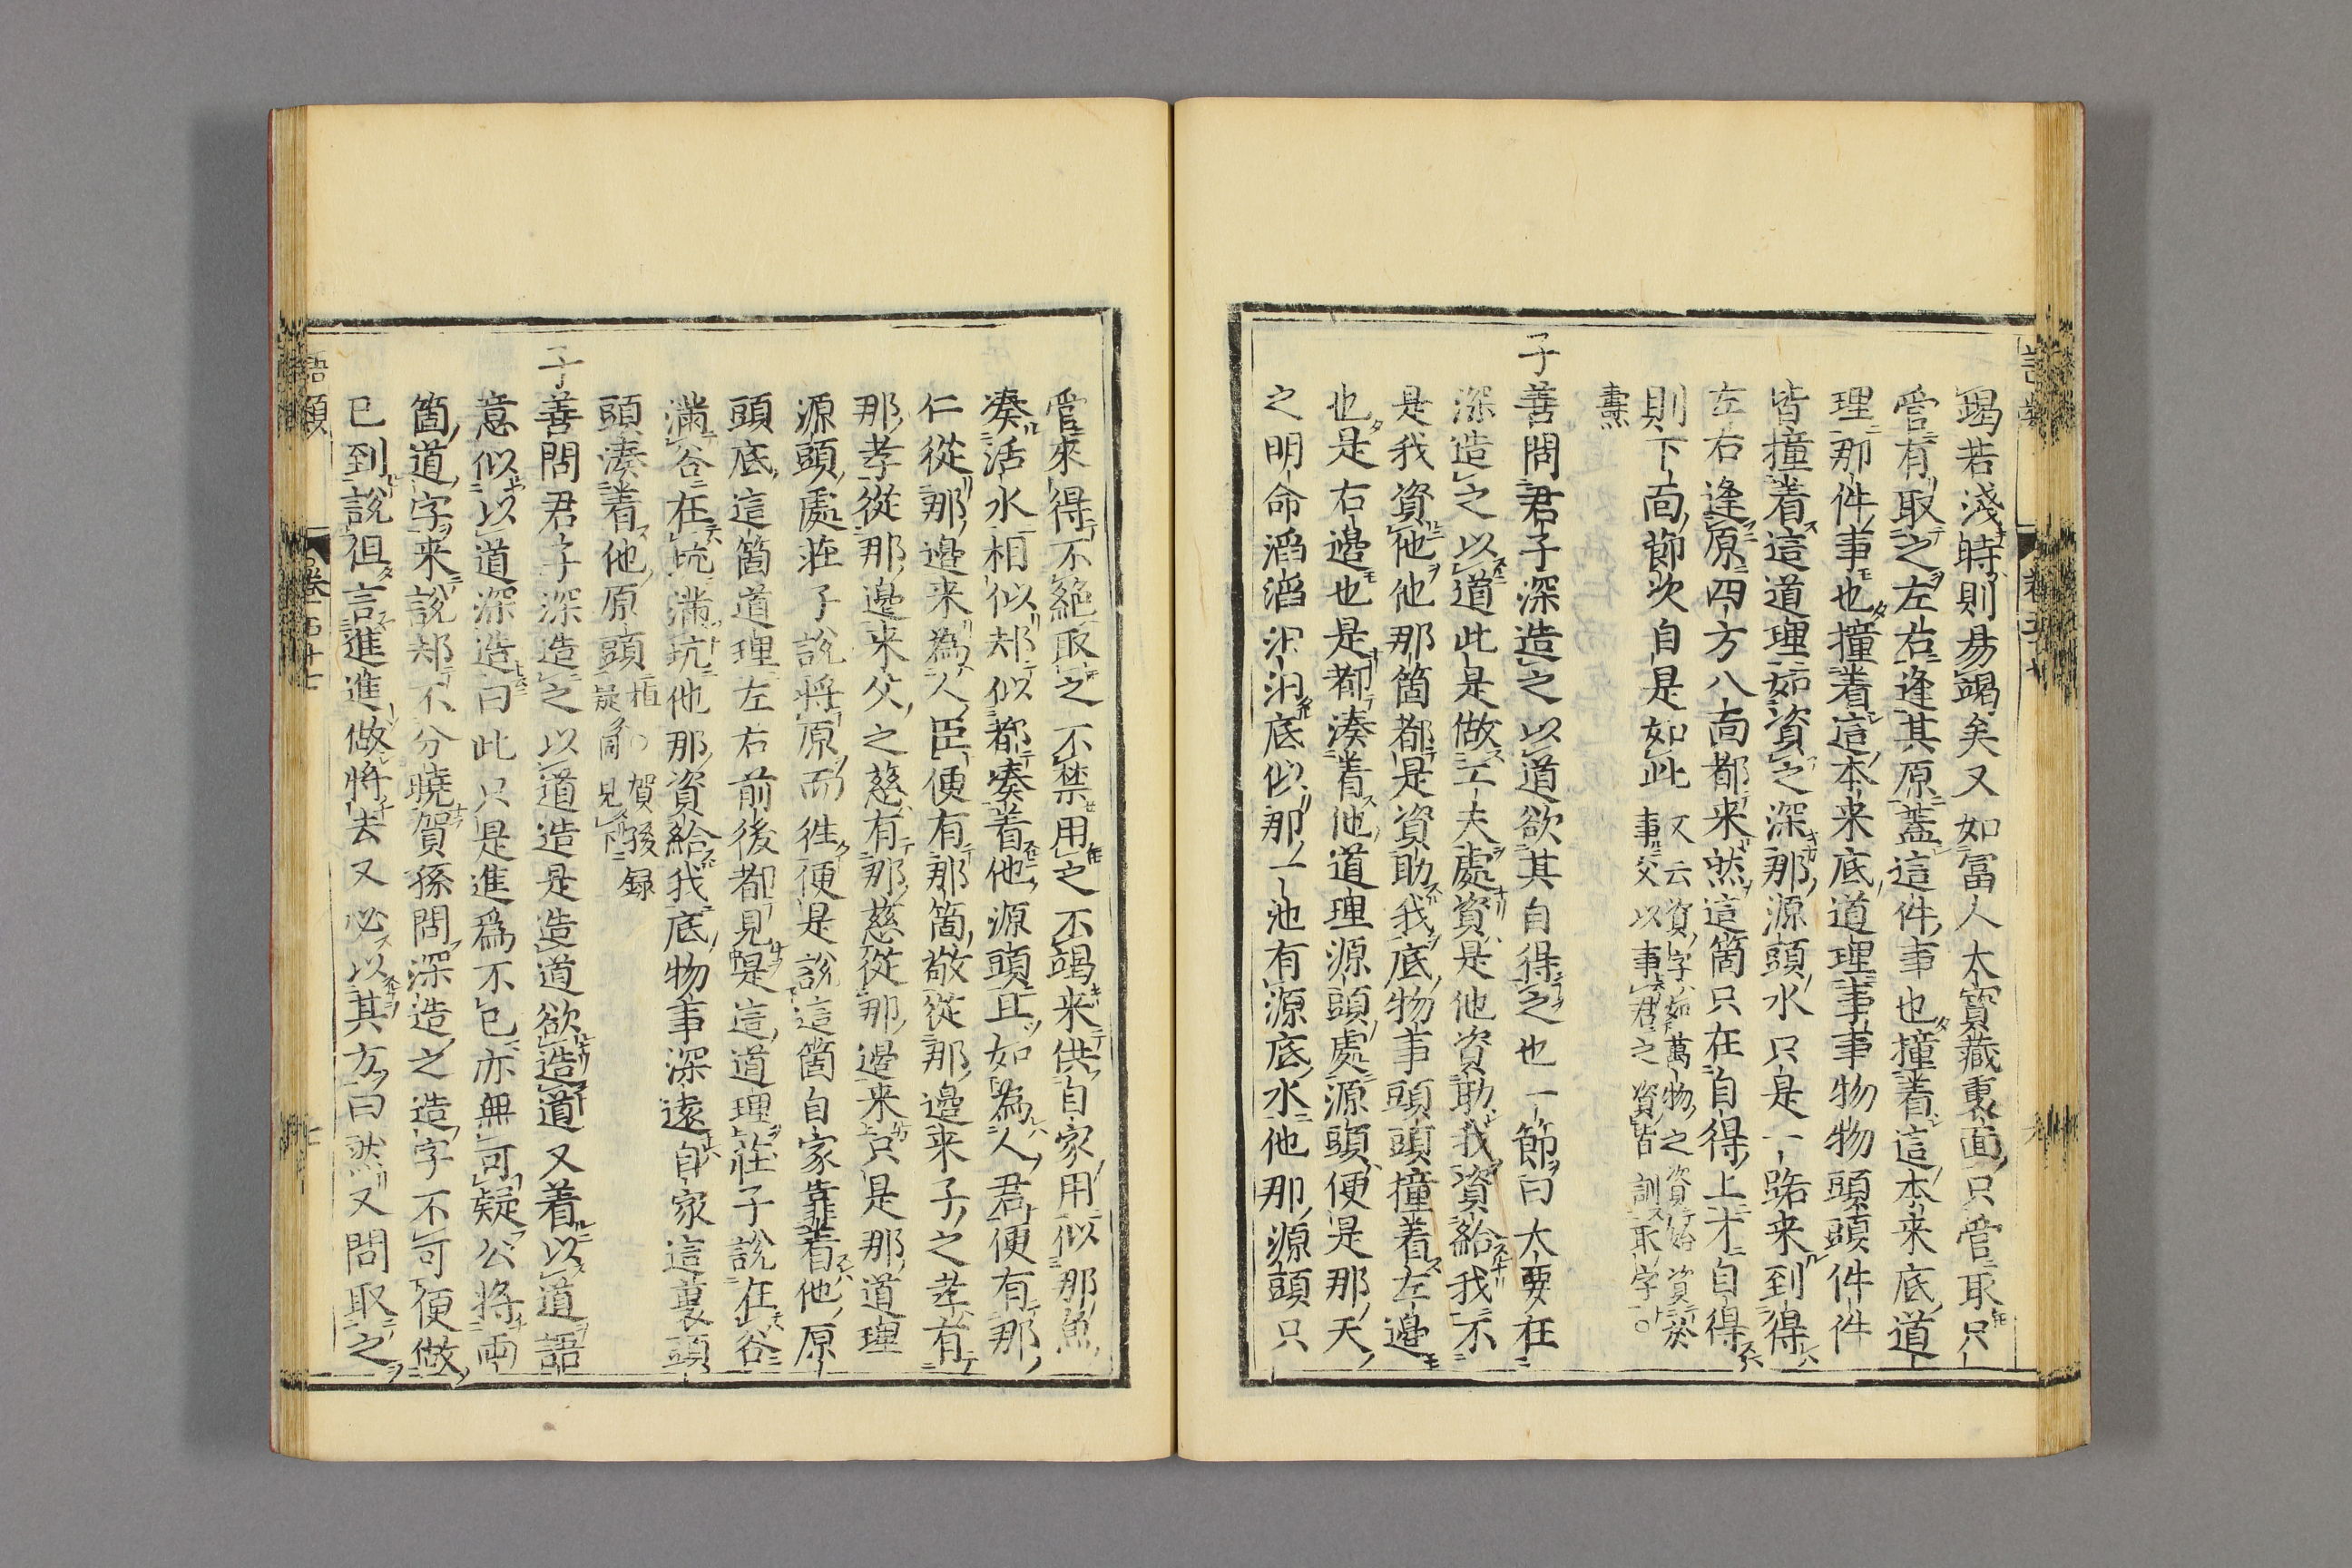 竭若淺時則易竭矣又如富人大寶藏裏面只管取只
管有取之左右逢其原蓋這件事也撞着這本来底道
理那件事也撞着這本来底道理事事物物頭頭件件
皆撞着這道理如資之深那源頭水只是一路来到得
左右逢原四方八面都来然這箇只在自得上才自得
則下面節次自是如此又云資字如萬物之資始資於
事父以事君之資皆訓取字○
燾
子善問君子深造之以道欲其自得之也一節曰大要在
深造之以道此是做工夫處資是他資助我資給我不
是我資他他那箇都是資助我底物事頭頭撞着左邊
也是右邊也是都湊着他道理源頭處源頭便是那天
之明命滔滔汩汩底似那一池有源底水他那源頭只
管來得不絕取之不禁用之不竭来供自家用似那魚
湊活水相似却似都湊着他源頭且如為人君便有那
仁從那邊来為人臣便有那箇敬從那邊来子之孝有
那孝從那邊来父之慈有那慈從那邊来只是那道理
源頭處莊子說將原而徃便是說這箇自家靠着他原
頭底這箇道理左右前後都見是這道理莊子說在谷
滿谷在坑滿坑他那資給我底物事深遠自家這裏頭
頭湊着他原頭植○賀孫録
疑同見下
子善問君子深造之以道造是造道欲造道又着以道語
意似以道深造曰此只是進爲不已亦無可疑公將兩
箇道字来說却不分曉賀孫問深造之造字不可便做
已到說但言進進做將去又必以其方曰然又問取之
語類
卷五十七